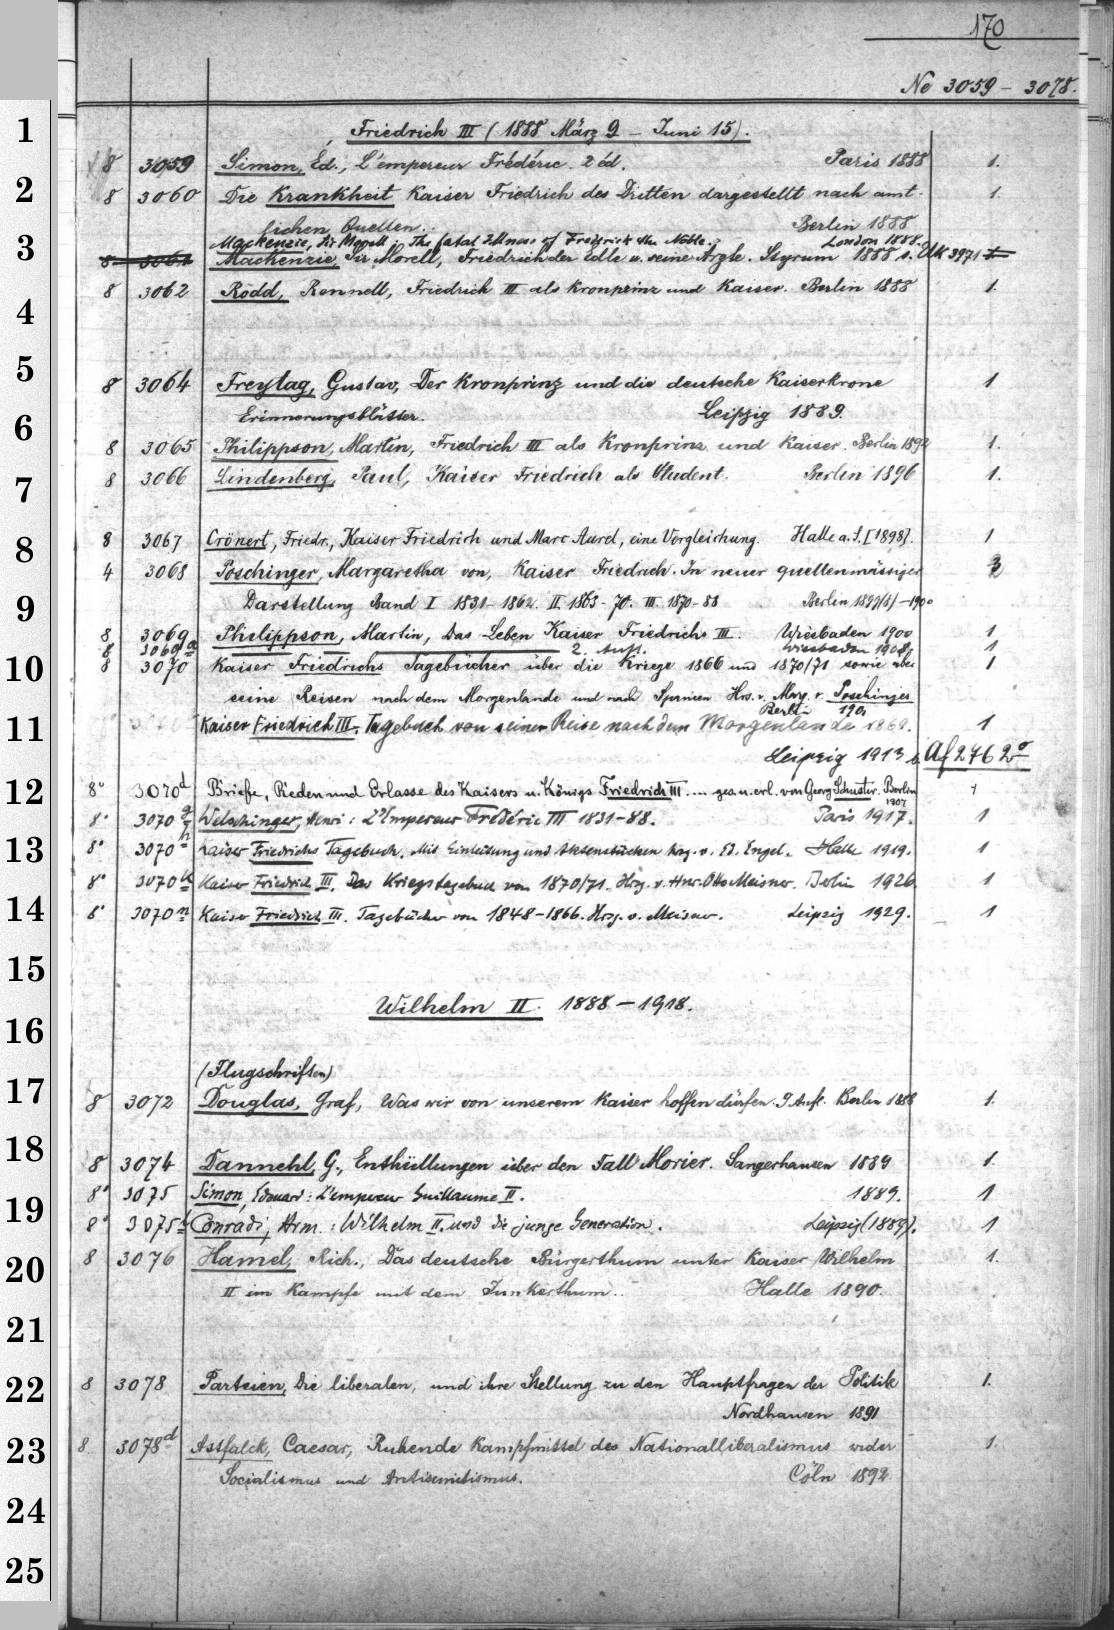 170
No 3059 – 3078.
1
Friedrich III (1888 März 9 – Juni 15).
8 3059 Simon, Éd., L'empereur Frédéric. 2 éd. Paris 1888 1.
2
8 3060 Die Krankheit Kaiser Friedrich des Dritten dargestellt nach amt-
lichen Quellen. Berlin 1888 1.
Mackenzie, Sir Morell, The fatal Illness of Frederick the Noble. London 1888.
3
8 3061 Mackenzie, Sir Morell, Friedrich der Edle u. seine Ärzte. Styrum 1888 s. Uk 3971 1
8 3062 Rodd, Rennell, Friedrich III als Kronprinz und Kaiser. Berlin 1888 1.
4
5
8 3064 Freytag, Gustav, Der Kronprinz und die deutsche Kaiserkrone 1
Erinnerungsblätter. Leipzig 1889.
6
8 3065 Philippson, Martin, Friedrich III als Kronprinz und Kaiser. Berlin 1892 1.
8 3066 Lindenberg, Paul, Kaiser Friedrich als Student. Berlin 1896 1.
7
8 3067 Crönert, Friedr., Kaiser Friedrich und Marc Aurel, eine Vergleichung. Halle a. S. [1898]. 1
8
4 3068 Poschinger, Margaretha von, Kaiser Friedrich. In neuer quellenmässiger 3
Darstellung Band I 1831–1862. II 1863–70. III. 1870–88 Berlin 1899(8)–1900
9
8 3069 Philippson, Martin, Das Leben Kaiser Friedrichs III. Wiesbaden 1900 1
8 3069a 2. Aufl. Wiesbaden 1908 1
10
8 3070 Kaiser Friedrichs Tagebücher über die Kriege 1866 und 1870/71 sowie über 1
seine Reisen nach dem Morgenlande und nach Spanien Hrs. v. Marg. v. Poschinger
Berlin 1901
11
Kaiser Friedrich III. Tagebuch von seiner Reise nach dem Morgenlande 1869. 1
Leipzig 1913 s. Af 276 2o
12
8o 3070d Briefe, Reden und Erlasse des Kaisers u. Königs Friedrich III .... ges. u. erl. von Georg Schuster. Berlin 1907 1
8o 3070g Welschinger, Henri: L'Empereur Frédéric III 1831–88. Paris 1917. 1
13
8o 3070h Kaiser Friedrichs Tagebuch. Mit Einleitung und Aktenstücken hrg. v. Ed. Engel. Halle 1919. 1
8o 3070k Kaiser Friedrich III. Das Kriegstagebuch von 1870/71. Hrg. v. Hnr. Otto Meisner. Berlin 1926. 1
14
8o 3070n Kaiser Friedrich III. Tagebücher von 1848–1866. Hrsg. v. Meisner. Leipzig 1929. 1
15
Wilhelm II. 1888–1918.
16
(Flugschriften)
17
8 3072 Douglas, Graf, Was wir von unserem Kaiser hoffen dürfen. 9 Aufl. Berlin 1888 1.
18
8 3074 Dannehl, G., Enthüllungen über den Fall Morier. Sangerhausen 1889 1.
8o 3075 Simon, Edouard: L'empereur Guillaume II. 1889. 1
19
8o 3075 Conradi, Herm.: Wilhelm II. und die junge Generation. Leipzig (1889). 1
8 3076 Hamel, Rich., Das deutsche Bürgerthum unter Kaiser Wilhelm 1.
20
II im Kampfe mit dem Junkerthum. Halle 1890.
21
8 3078 Parteien, Die liberalen, und ihre Stellung zu den Hauptfragen der Politik 1.
22
Nordhausen 1891
23
8 3078d Astfalck, Caesar, Ruhende Kampfmittel des Nationalliberalismus wider 1.
Socialismus und Antisemitismus. Cöln 1892
24
25